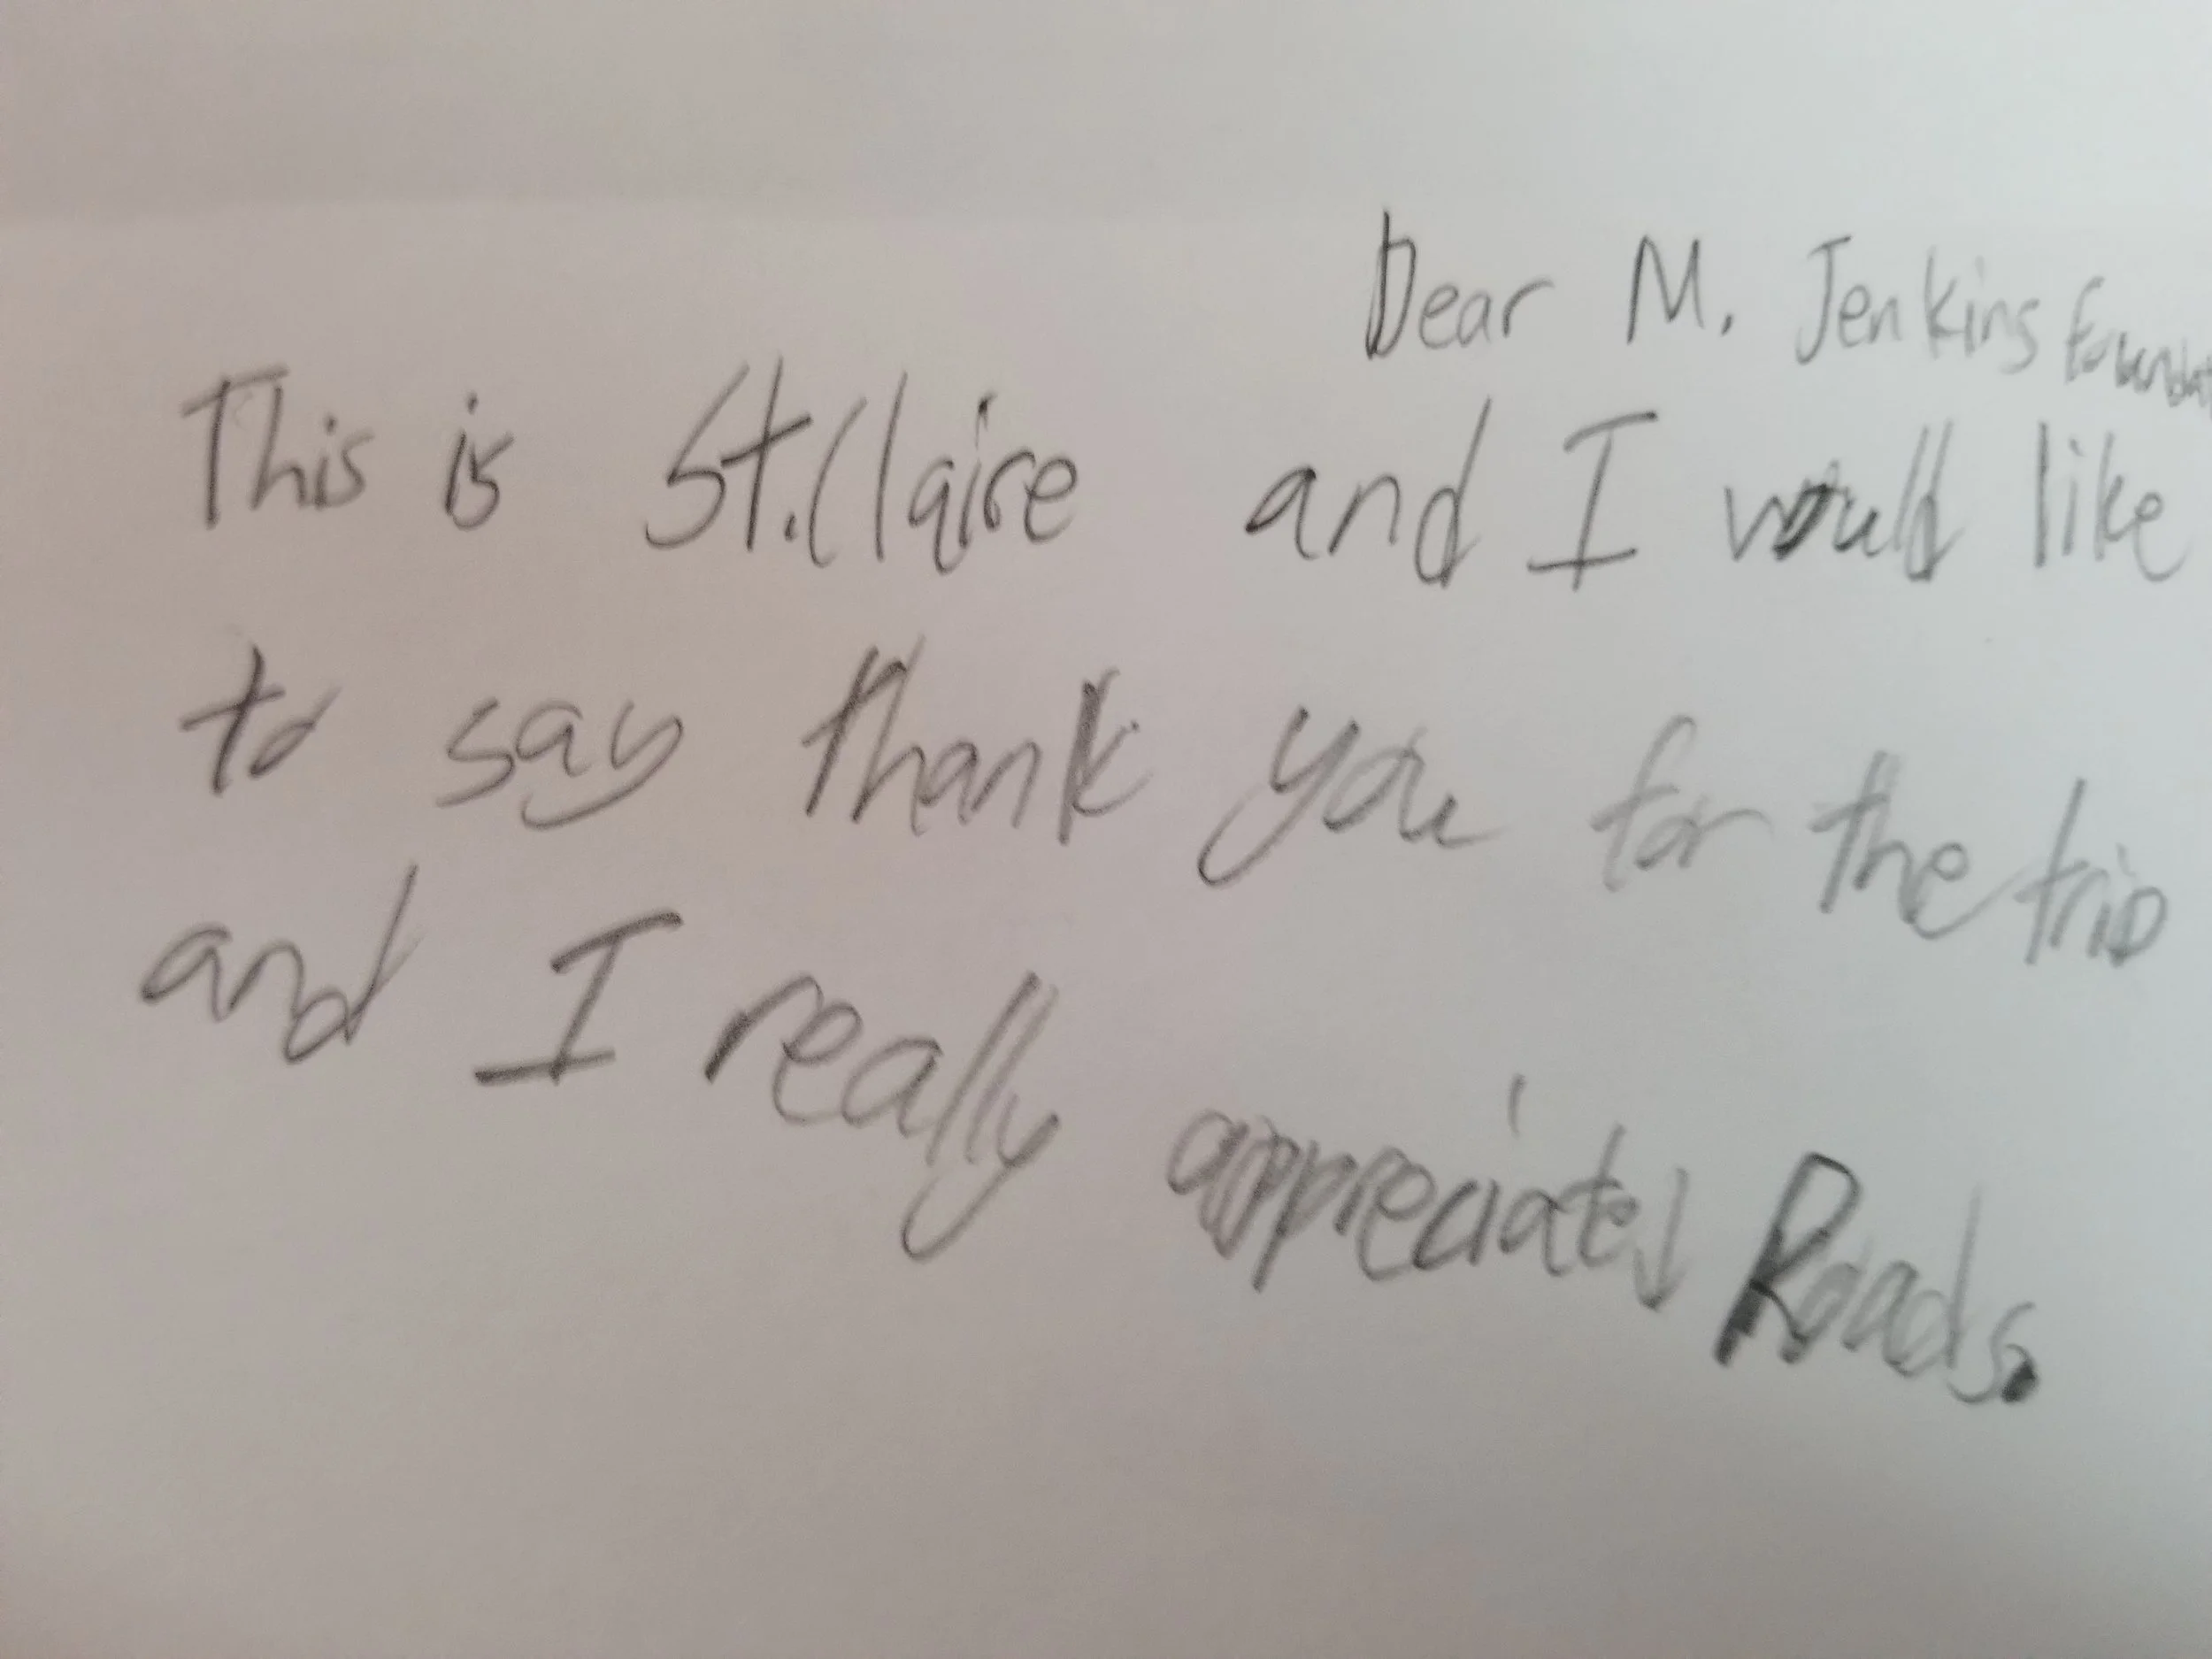 Dear M. Jenkins Foundat
This is St.Claire and I would like
to say thank you for the trip
and I really appreciated Roads.